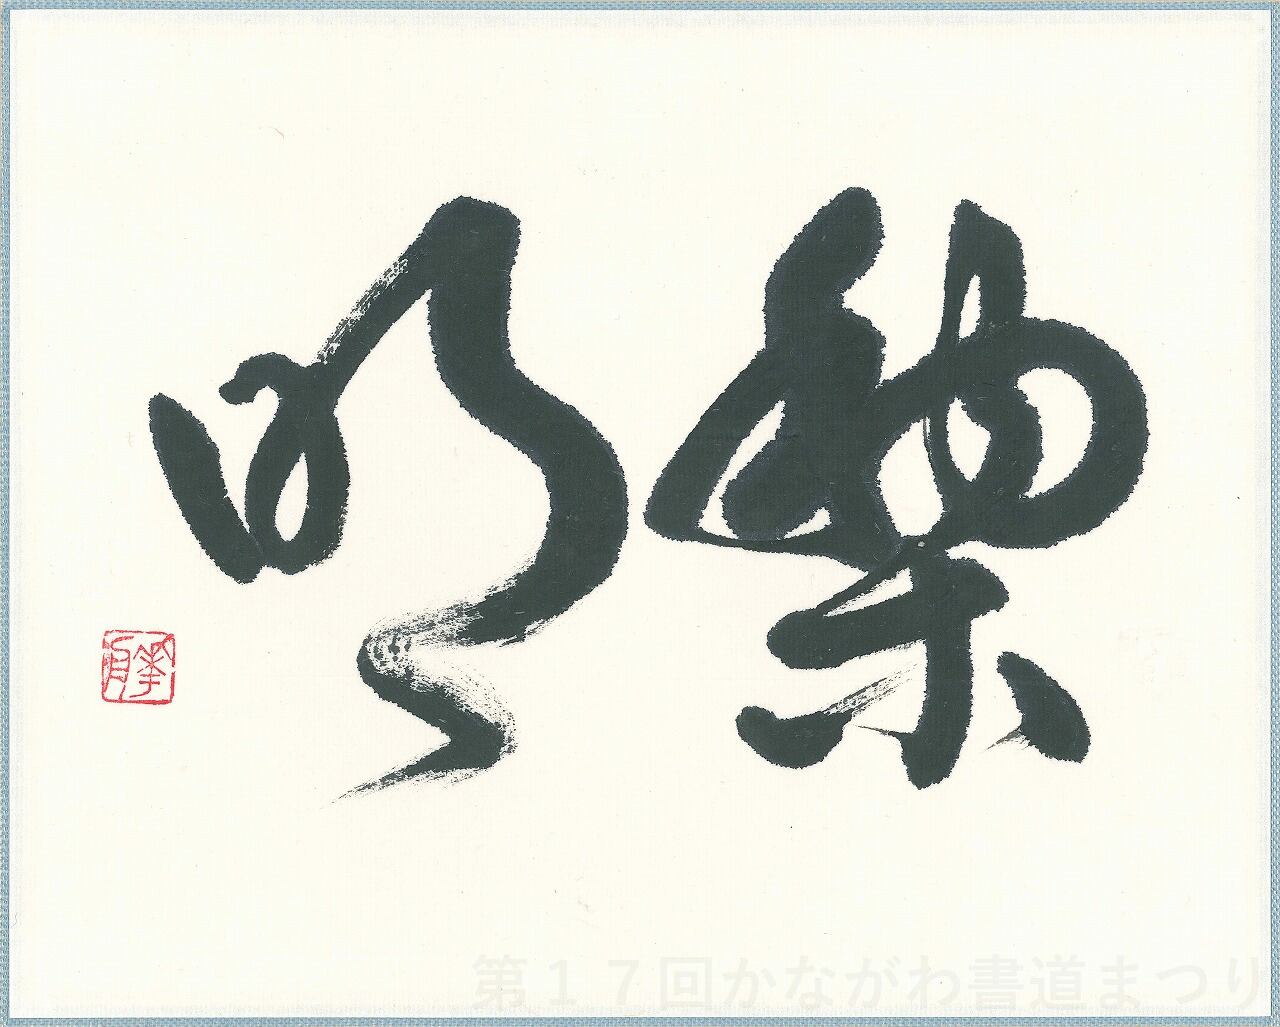 黎明
第１７回かながわ書道まつり